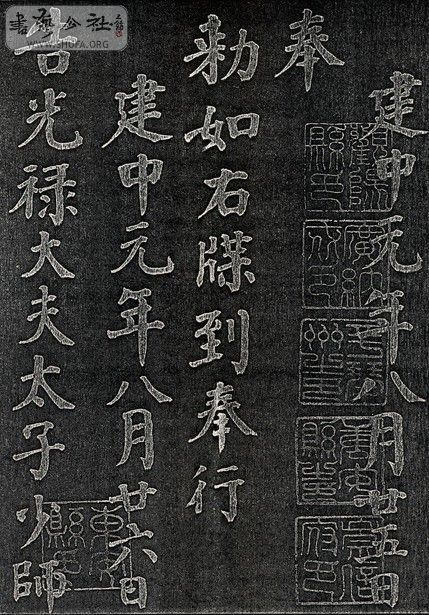 建中元年八月廿五日
奉
勅如右牒到奉行
建中元年八月廿六日
告光禄大夫太子少師
書法公社
WWW.SHUFA.ORG